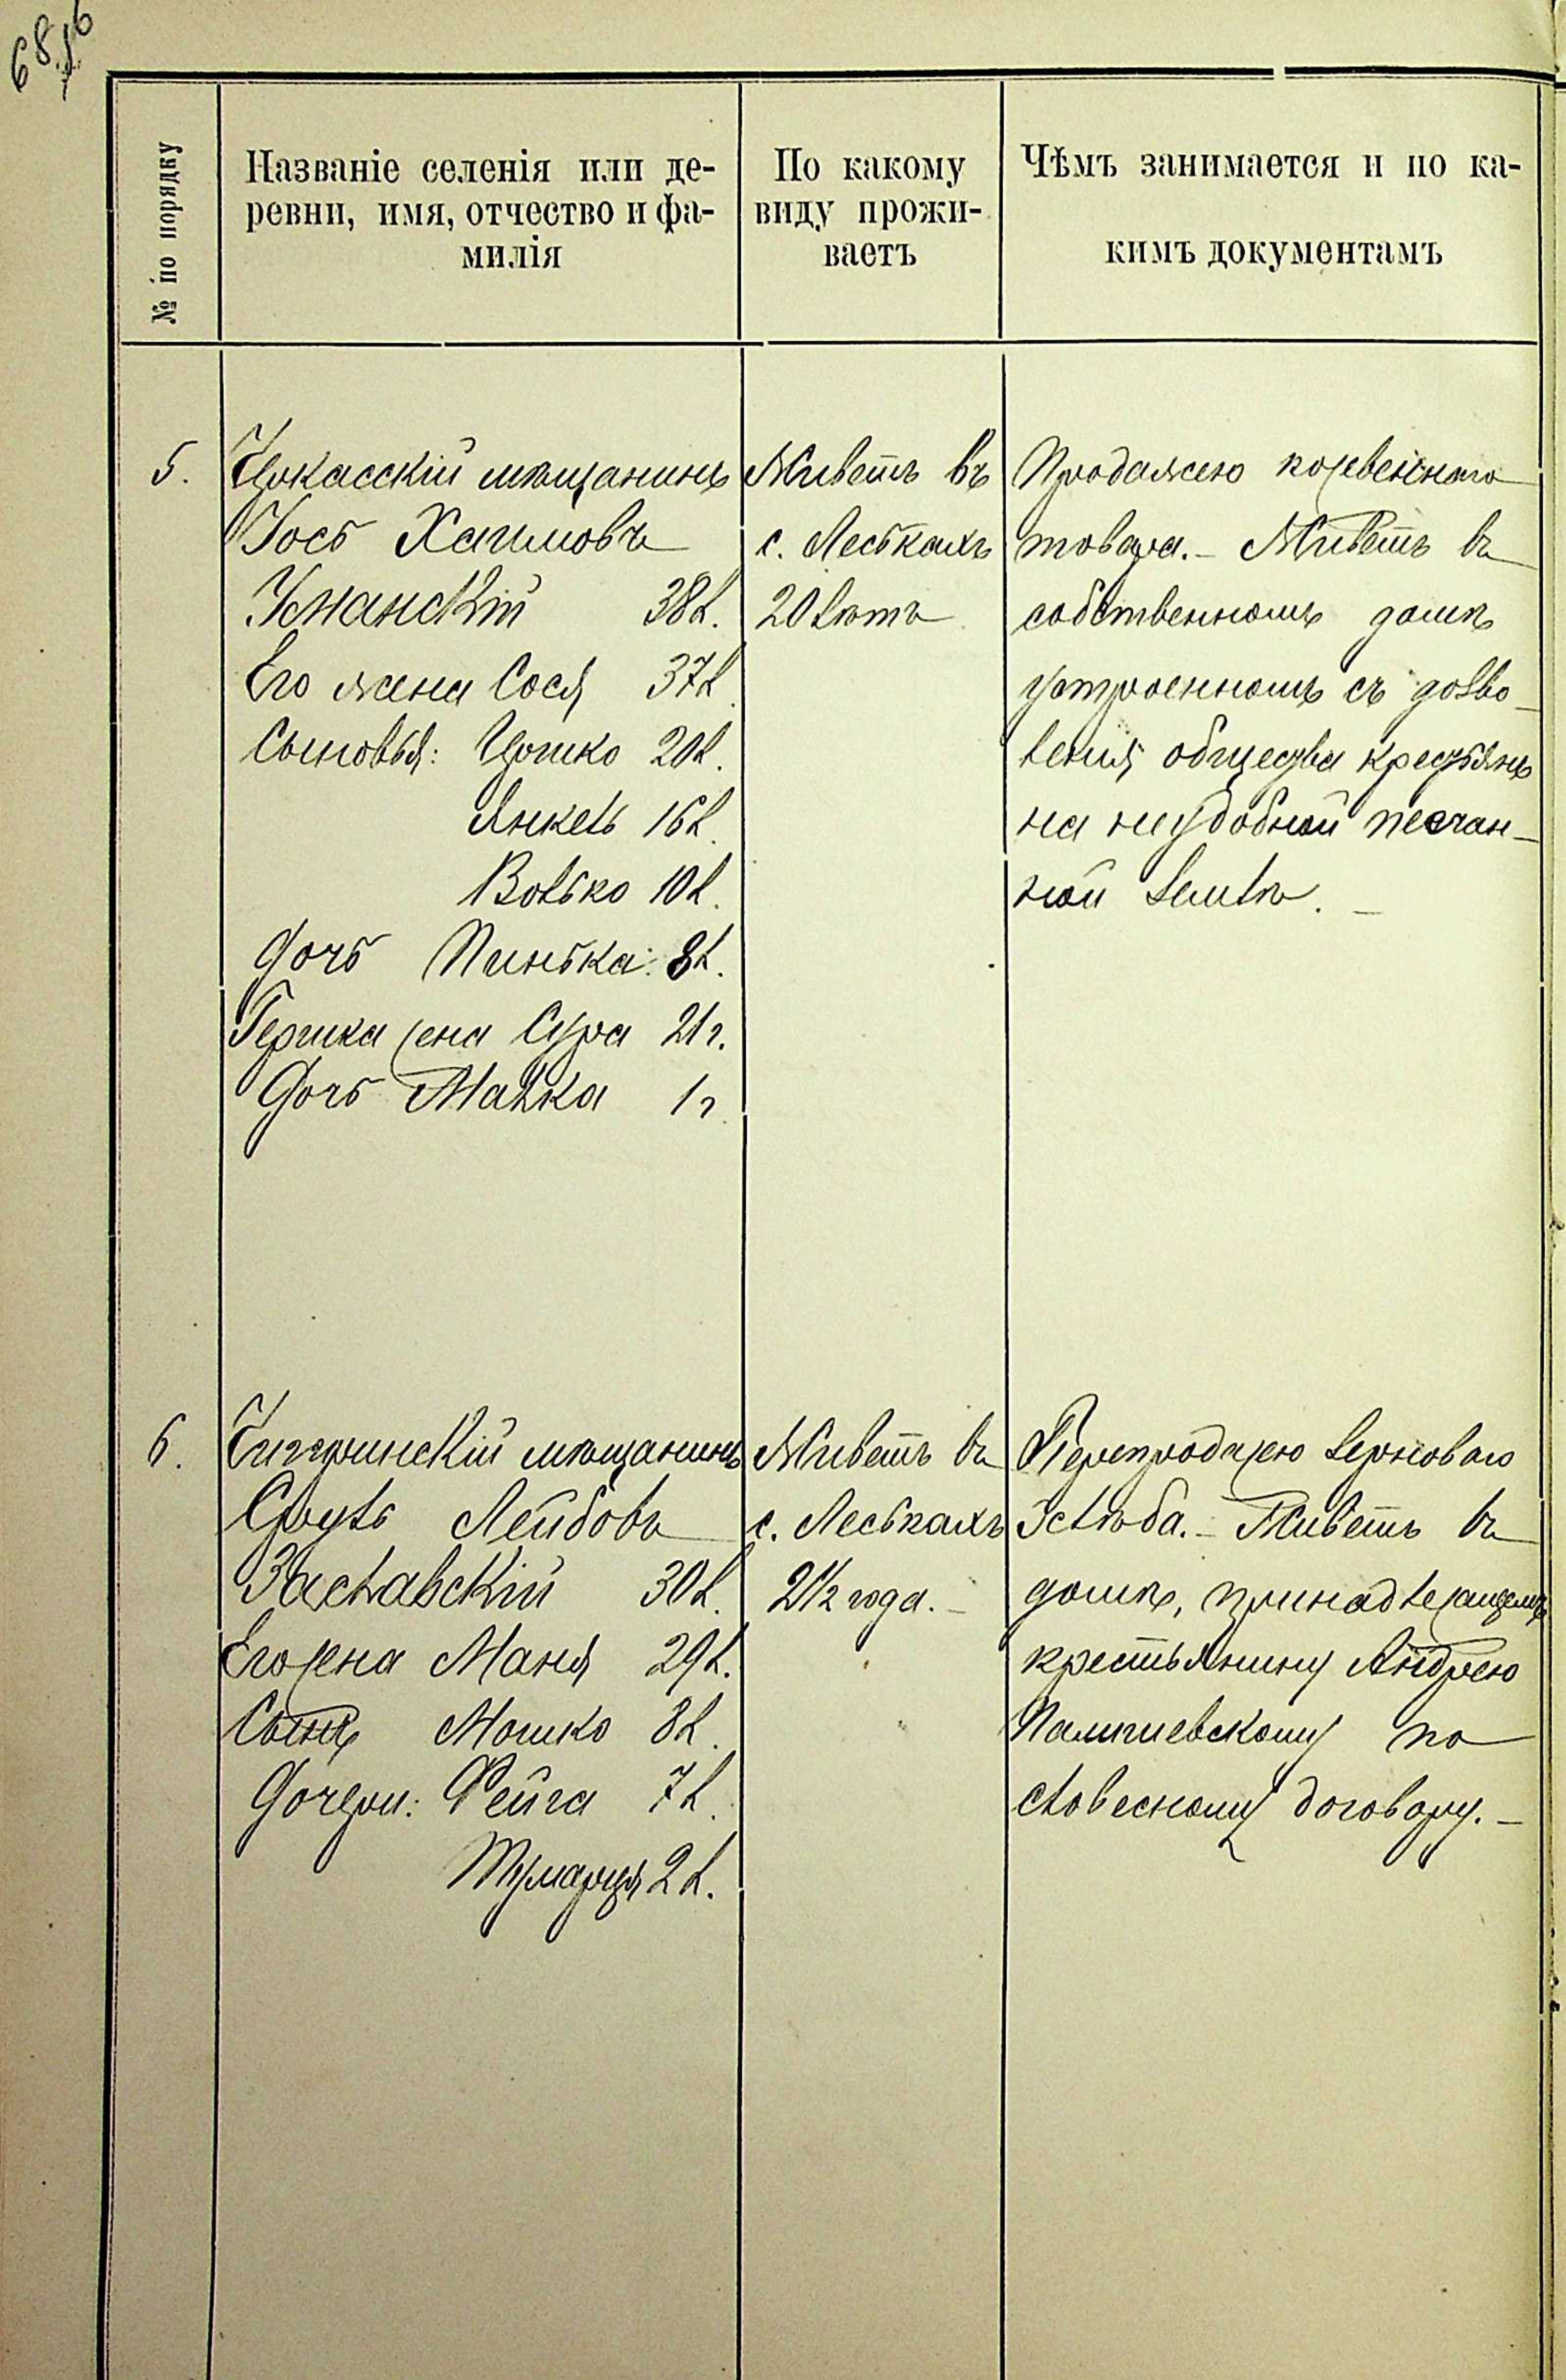 № по порядку
Названіе селенія или де-
ревни, имя, отчество и фа-
милія
По какому
виду прожи-
ваетъ
Чѣмъ занимается и по ка-
кимъ документамъ
5.
Черкасскій мѣщанинъ
Іось Хаимовъ
Уманскій 38 л.
Его жена Сося 37 л.
Сыновья: Гершко 20 л.
Янкель 16 л.
Волько 10 л.
Дочь Пинька 8 л.
Гершка жена Сура 21 г.
Дочь Малка 1 г.
Живетъ въ
с. Леськахъ
20 лѣтъ
Продажею кожевеннаго
товара. - Живетъ въ
собственномъ домѣ
устроенномъ съ дозво-
ленія общества крестьянъ
на неудобной песчан-
ной землѣ. -
6.
Чигиринскій мѣщанинъ
Сруль Лейбовъ
Заславскій 30 л.
Его жена Маня 29 л.
Сынъ Мошко 8 л.
Дочери: Фейга 7 л.
2 л.
Живетъ въ
с. Леськахъ
2 1/2 года. -
Перепродажею зерноваго
хлѣба. - Живетъ въ
домѣ, принадлежащемъ
крестьянину Андрею
по
словесному договору. -